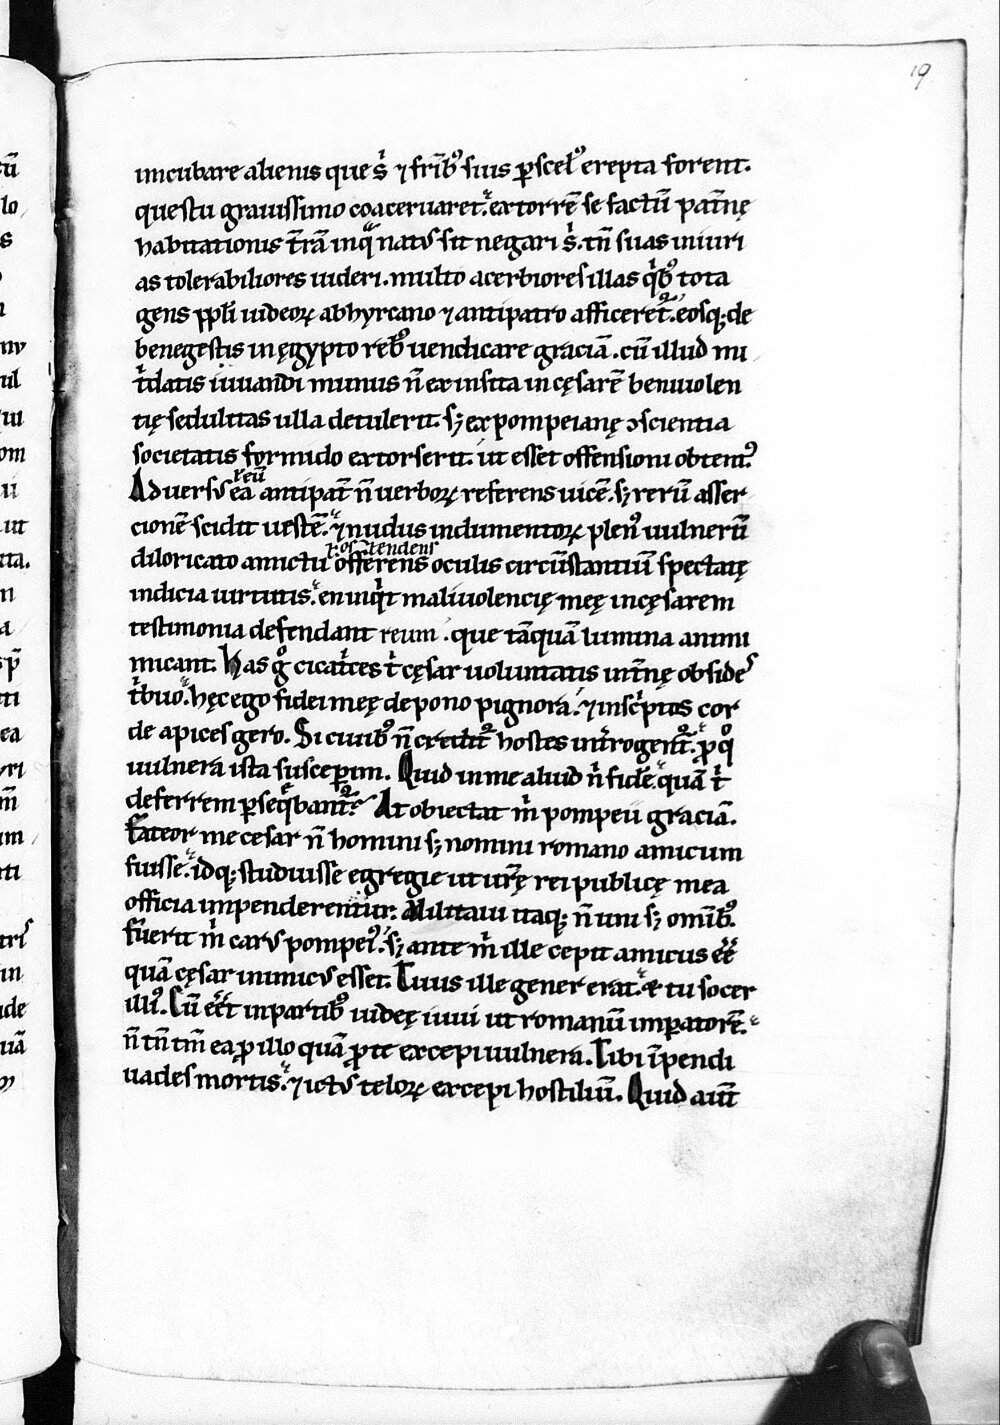 19
incubare alienis que s̓ ⁊ frīb᷒ suis ꝑ scel᷒ erepta forent.
questu grauissimo coaceruaret. extorrē se factū pat̄nę
habitationis t̄rā inq̄ natus sit negari s̓. tn̄ suas iniuri
as tolerabiliores uideri. multo acerbiores illas q̓b᷒ tota
gens ppl̓i iudeoꝝ ab hyrcano ⁊ antipatro afficeret᷑. eosq; de
bene gestis in ęgypto reb᷒ uendicare graciā. cū illud mi
t̓datis iuuandi munus n̄ ex insita in cęsarē beniuolen
tię sedulitas ulla detulerit. sꝫ ex pompeianę ɔscientia
societatis formido extorserit. ut esset offensioni obtent᷒.
Aduersus ea antipat̄ n̄ uerboꝝ referens uicē. sꝫ rerū asser
reū
cionē scidit uestē. ⁊ nudus indumentoꝝ plen᷒ uulnerū
diloricato amictu offerens oculis circūstantiū spectatę
ł ostendens
indicia uirtutis. en inq̓t maliuolencię meę in cęsarem
testimonia defendant reum. que tāquā lumina animi
micant. Has g̊ cicat̓ces t̓ cęsar uoluntatis int̄nę obsides
t̓buo. hęc ego fidei meę depono pignora. ⁊ insc̓ptos cor
de apices gero. Si ciuib᷒ n̄ credit᷑ hostes int̄rogent᷑. ꝓ q̊
uulnera ista susceperim. Quid in me aliud n̓ fidē quā t̓
deferrem ꝑseq̓bant᷑. At obiectat m̓ pompeii graciā.
Fateor me cesar n̄ homini sꝫ nomini romano amicum
fuisse. idq; studuisse egregie ut ur̄ę rei publicę mea
officia impenderentur. Militaui itaq; n̄ uni sꝫ omīb᷒.
fuerit m̓ carus pompei᷒. sꝫ ante m̓ ille cepit amicus ēē
quā cęsar inimicus esset. Tuus ille gener erat. & tu socer
illi᷒. Cū ēēt in partib᷒ iudeę iuui ut romanū imperatorē.
n̄ tn̄ tm̄ ea ꝓ illo quā ꝓ te excepi uulnera. Tibi īpendi
uades mortis. ⁊ ictus teloꝝ excepi hostiliū. Quid aiūt